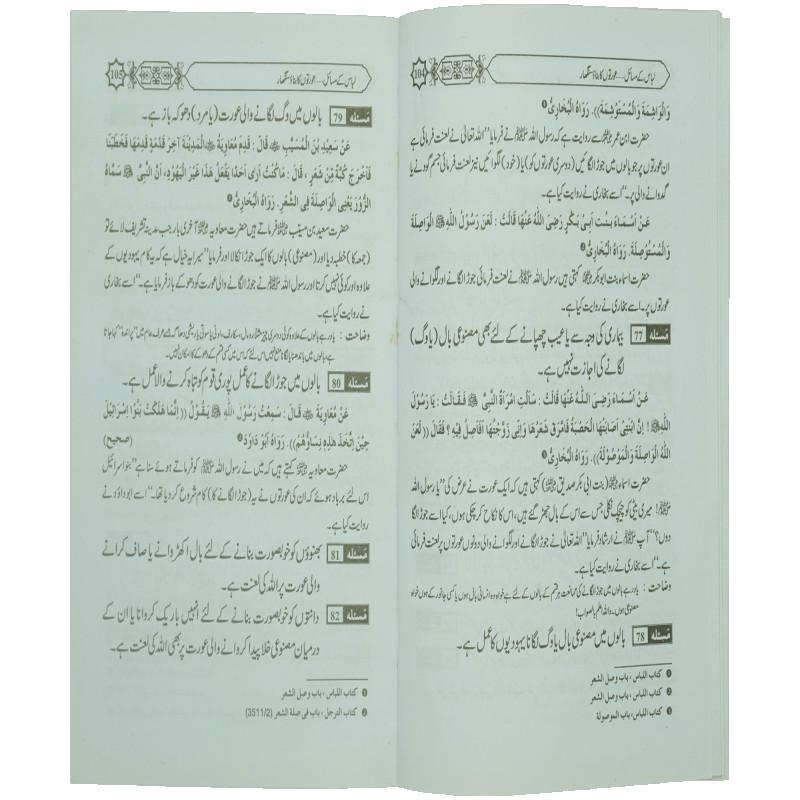 لباس کے مسائل .... عورتوں کا بناؤ سنگھار
104
وَالْوَاشِمَةَ وَالْمُسْتَوْشِمَةَ)). رَوَاهُ الْبُخَارِيُّ ❶
حضرت ابن عمر ﷜ سے روایت ہے کہ رسول اللہ ﷺ نے فرمایا ’’اللہ تعالٰی نے لعنت فرمائی ہے
ان عورتوں پر جو بالوں میں جوڑ لگائیں (دوسری عورتوں کو) یا (خود) لگوائیں نیز لعنت فرمائی جسم گودنے یا
گدوانے والی پر۔‘‘ اسے بخاری نے روایت کیا ہے۔
عَنْ أَسْمَاءَ بِنْتِ أَبِي بَكْرٍ رَضِيَ اللَّهُ عَنْهَا قَالَتْ : لَعَنَ رَسُوْلُ اللَّهِ ﷺ الْوَاصِلَةَ
وَالْمُسْتَوْصِلَةَ. رَوَاهُ الْبُخَارِيُّ ❷
حضرت اسماء بنت ابوبکر ﷠ کہتی ہیں رسول اللہ ﷺ نے لعنت فرمائی جوڑ لگانے اور لگوانے والی
عورتوں پر۔ اسے بخاری نے روایت کیا ہے۔
مسئلہ 77 بیماری کی وجہ سے یا عیب چھپانے کے لئے بھی مصنوعی بال (یا وگ)
لگانے کی اجازت نہیں ہے۔
عَنْ أَسْمَاءَ رَضِيَ اللَّهُ عَنْهَا قَالَتْ : سَأَلَتِ امْرَأَةٌ النَّبِيَّ ﷺ فَقَالَتْ : يَا رَسُوْلَ
اللَّهِ ﷺ ! إِنَّ ابْنَتِيْ أَصَابَتْهَا الْحَصْبَةُ فَامَّرَقَ شَعْرُهَا وَإِنِّيْ زَوَّجْتُهَا أَفَأَصِلُ فِيْهِ ؟ فَقَالَ ((لَعَنَ
اللَّهُ الْوَاصِلَةَ وَالْمَوْصُوْلَةَ)). رَوَاهُ الْبُخَارِيُّ ❸
حضرت اسماء (بنت ابی بکر صدیق ﷠) کہتی ہیں کہ ایک عورت نے عرض کی ’’یا رسول اللہ
ﷺ! میری بیٹی کو چیچک نکلی جس سے اس کے بال جھڑ گئے ہیں، اس کا نکاح کر چکی ہوں، کیا اسے جوڑ لگا
دوں؟‘‘ آپ ﷺ نے ارشاد فرمایا ’’اللہ تعالٰی نے جوڑ لگانے اور لگوانے والی دونوں عورتوں پر لعنت فرمائی
ہے۔‘‘ اسے بخاری نے روایت کیا ہے۔
وضاحت : یاد رہے بالوں میں جوڑ لگانے کی ممانعت ہر قسم کے بالوں کے لئے ہے خواہ وہ انسانی بال ہوں یا کسی جانور کے ہوں خواہ
مصنوعی ہوں۔ واللہ اعلم بالصواب!
مسئلہ 78 بالوں میں مصنوعی بال یا وگ لگانا یہودیوں کا عمل ہے۔
❶ كتاب اللباس ، باب وصل الشعر
❷ كتاب اللباس ، باب وصل الشعر
❸ كتاب اللباس، باب الموصولة
لباس کے مسائل .... عورتوں کا بناؤ سنگھار
105
مسئلہ 79 بالوں میں وگ لگانے والی عورت (یا مرد) دھوکہ باز ہے۔
عَنْ سَعِيْدِ بْنِ الْمُسَيَّبِ ﷜ قَالَ : قَدِمَ مُعَاوِيَةُ ﷜ الْمَدِيْنَةَ آخِرَ قَدْمَةٍ قَدِمَهَا فَخَطَبَنَا
فَأَخْرَجَ كُبَّةً مِنْ شَعْرٍ ، قَالَ : مَا كُنْتُ أَرَى أَحَدًا يَفْعَلُ هَذَا غَيْرَ الْيَهُوْدِ، إِنَّ النَّبِيَّ ﷺ سَمَّاهُ
الزُّوْرَ يَعْنِي الْوَاصِلَةَ فِي الشَّعْرِ. رَوَاهُ الْبُخَارِيُّ ❶
حضرت سعید بن مسیب ﷜ فرماتے ہیں حضرت معاویہ ﷜ آخری بار جب مدینہ تشریف لائے تو
(جمعہ کا) خطبہ دیا اور (مصنوعی) بالوں کا ایک جوڑا نکالا اور فرمایا ’’میرا یہ خیال ہے کہ یہ کام یہودیوں کے
علاوہ اور کوئی نہیں کرتا اور رسول اللہ ﷺ نے جوڑ لگانے والی عورت کو دھوکے باز فرمایا ہے۔‘‘ اسے بخاری
نے روایت کیا ہے۔
وضاحت : یاد رہے بالوں کے علاوہ کوئی دوسری چیز مثلاً رومال، سکارف، اونی یا سوتی یا ریشمی دھاگہ جسے عرف عام میں ’’پراندہ‘‘ کہا جاتا
ہے، بالوں میں باندھنا یا لگانا منع نہیں اس لئے کہ اس میں کسی قسم کے دھوکے کا امکان نہیں۔
مسئلہ 80 بالوں میں جوڑ لگانے کا عمل پوری قوم کو تباہ کرنے والا عمل ہے۔
عَنْ مُعَاوِيَةَ ﷜ قَالَ : سَمِعْتُ رَسُوْلَ اللَّهِ ﷺ يَقُوْلُ ((إِنَّمَا هَلَكَتْ بَنُوْا إِسْرَائِيْلَ
حِيْنَ اتَّخَذَ هَذِهِ نِسَاؤُهُمْ)). رَوَاهُ أَبُوْ دَاوُدَ ❷ (صحيح)
حضرت معاویہ ﷜ کہتے ہیں کہ میں نے رسول اللہ ﷺ کو فرماتے ہوئے سنا ہے ’’بنو اسرائیل
اس لئے برباد ہوئے کہ ان کی عورتوں نے یہ (جوڑ لگانے کا) کام شروع کر دیا تھا۔‘‘ اسے ابوداؤد نے
روایت کیا ہے۔
مسئلہ 81 بھنوؤں کو خوبصورت بنانے کے لئے بال اکھڑوانے یا صاف کرانے
والی عورت پر اللہ کی لعنت ہے۔
مسئلہ 82 دانتوں کو خوبصورت بنانے کے لئے انہیں باریک کروانا یا ان کے
درمیان مصنوعی خلا پیدا کروانے والی عورت پر بھی اللہ کی لعنت ہے۔
❶ كتاب اللباس ، باب وصل الشعر
❷ كتاب الترجل ، باب فى صلة الشعر (3511/2)